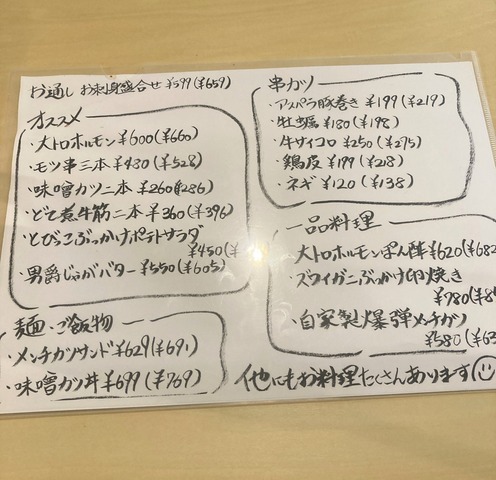 お通し お刺身盛合せ ¥599(¥659)
オススメ
・大トロホルモン ¥600(¥660)
・モツ串三本 ¥480(¥528)
・味噌カツ二本 ¥260(¥286)
・どて煮牛筋二本 ¥360(¥396)
・とびこぶっかけポテトサラダ
¥450(¥
・男爵じゃがバター ¥550(¥605)
麺・ご飯物
・メンチカツサンド ¥629(¥691)
・味噌カツ丼 ¥699(¥769)
串カツ
・アスパラ豚巻き ¥199(¥219)
・牡蠣 ¥180(¥198)
・牛サイコロ ¥250(¥275)
・鶏皮 ¥199(¥218)
・ネギ ¥120(¥138)
一品料理
大トロホルモンぽん酢 ¥620(¥682
・ズワイガニぶっかけ卵焼き
¥780(¥8
・自家製爆弾メンチカツ
¥580(¥63
他にもお料理たくさんあります